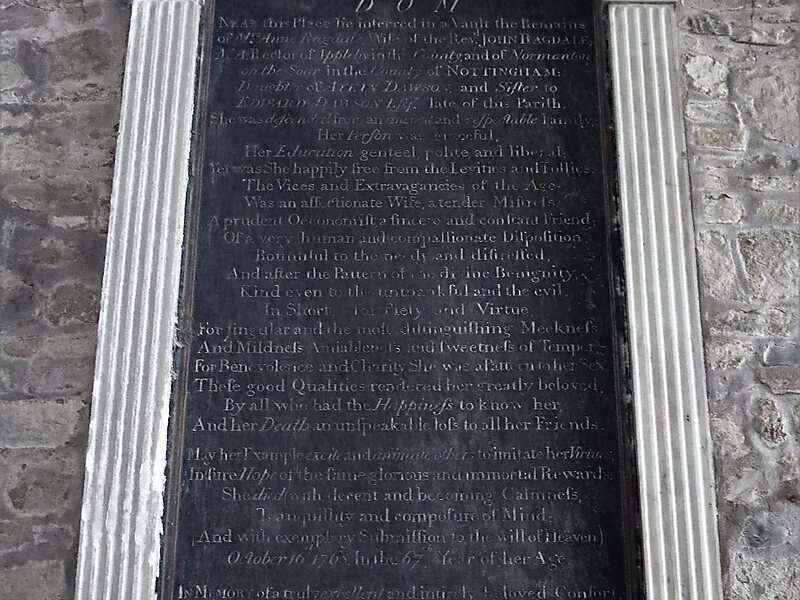 D O M
NEAR this Place lie interred in a Vault the Remains
of Mrs. Anne Ragdale, Wife of the Revd. JOHN RAGDALE,
Rector of Appleby in the County and of Normanton
on the Soar in the County of NOTTINGHAM:
Daughter of DAWSON, and Sister to
EDWARD DAWSON Esqr. late of this Parish.
She was descended from an ancient and respectable Family,
Her Person was graceful,
Her Education genteel, polite, and liberal;
Yet was She happily free from the Levities and Follies,
The Vices and Extravagancies of the Age.
Was an affectionate Wife, a tender Mistress.
A prudent Oeconomist a sincere and constant Friend;
Of a very human and compassionate Disposition,
Bountiful to the needy and distressed,
And after the Pattern of the divine Benignity,
Kind even to the unthankful and the evil.
In Short, for Piety and Virtue
For singular and the most distinguishing Meekness
And Mildness Amiableness and sweetness of Temper;
For Benevolence and Charity She was a Pattern to her Sex.
These good Qualities rendered her greatly beloved,
By all who had the Happiness to know her,
And her Death an unspeakable loss to all her Friends.
May her Example excite and animate others to imitate her Virtues,
In sure Hope of the same glorious and immortal Rewards.
She died with decent and becoming Calmness,
Tranquillity and composure of Mind;
(And with exemplary Submission to the will of Heaven)
October 16 1768. In the 67th. Year of her Age.
IN MEMORY of a truly excellent and intirely Beloved Consort,